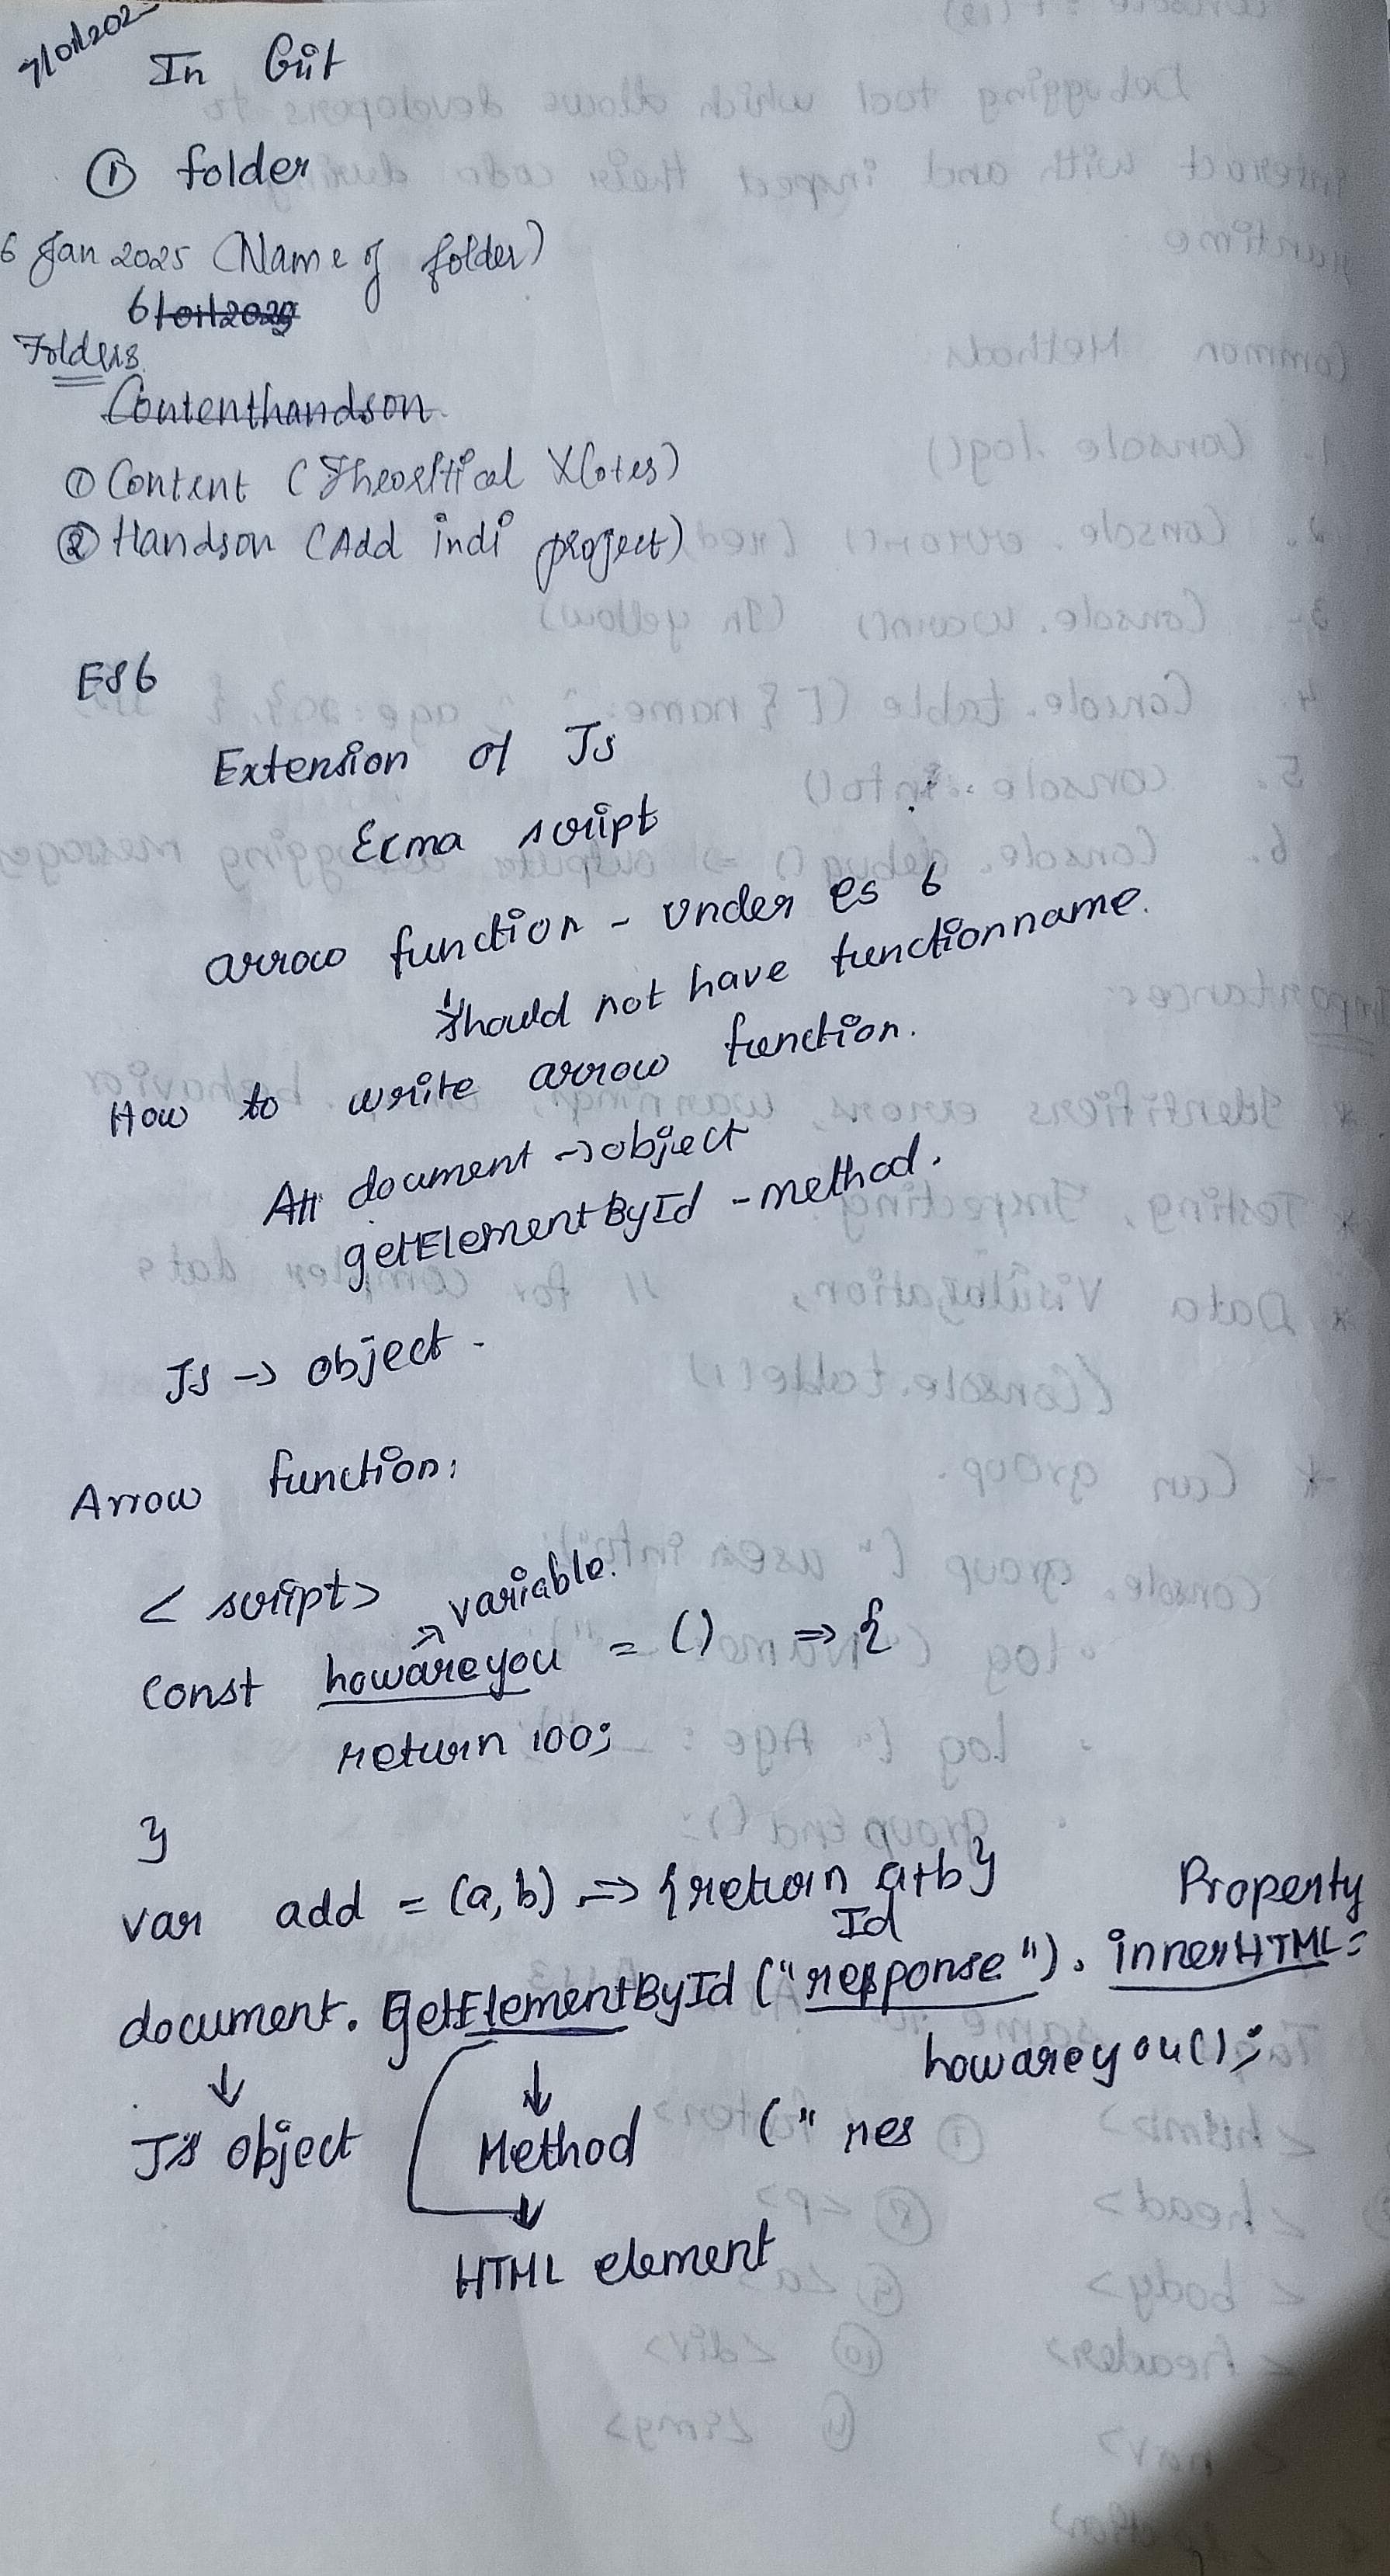 7/01/202
In Git
① folder
6 Jan 2025 (Name of folder)
6/01/2029
Folders
Contenthandson
① Content (Theoritical Notes)
② Handson (Add indi project)
ES6
Extension of Js
Ecma script
arrow function - Under es 6
should not have functionname.
How to write arrow function.
document → object
getElementById - method.
Js → object.
Arrow function:
<script>
variable.
const howareyou = () => {
return 100;
}
var add = (a, b) => {return a+b}
Id
Property
document. getElementById ("response"). innerHTML =
howareyou();
JS object
Method
(" res
HTML element